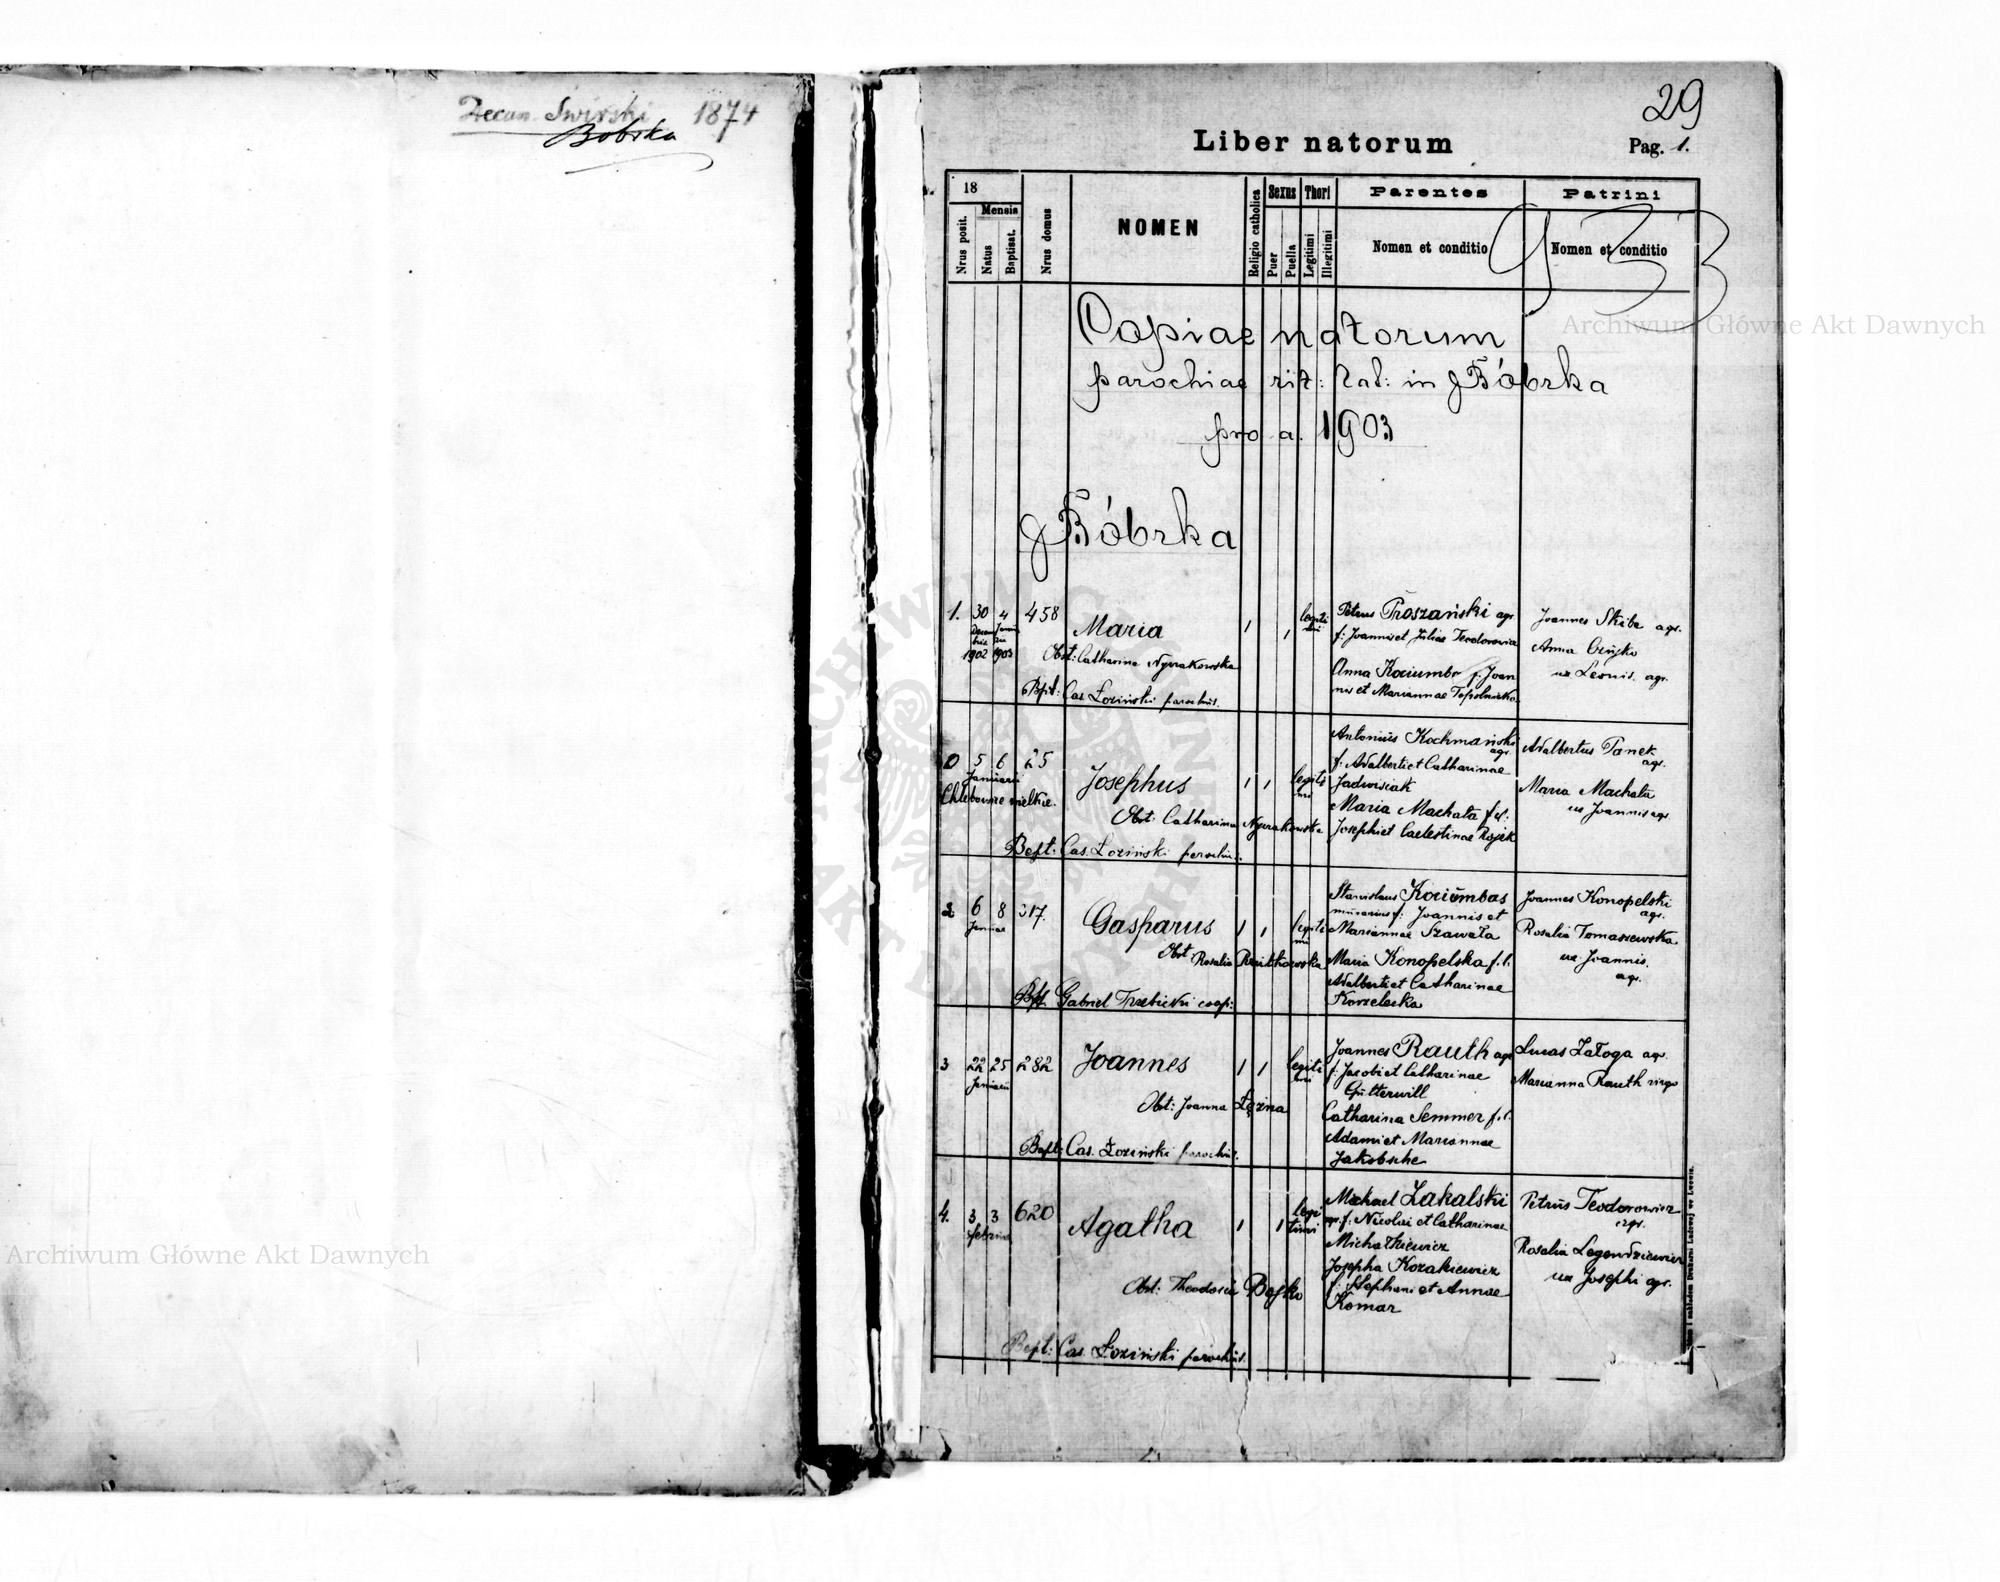 Decan. Swirski 1874
Bobrka
29
Liber natorum
Pag. 1.
18
Mensis
Nrus posit.
Natus
Baptisat.
Nrus domus
NOMEN
Religio catholica
Sexus
Puer
Puella
Thori
Legitimi
Illegitimi
Parentes
Nomen et conditio
Patrini
Nomen et conditio
933
Copiae natorum
parochiae rit: lat: in Bóbrka
pro a. 1903
Bóbrka
1. 30 4 458
1902 1903
Maria
Obst: Catharina Nyrakowska
Bpt: Cas. Łoziński parochus.
legiti
mi
Petrus Proszański agr.
f: Joannis et Juliae Teodorowicz
Anna Kociumbas f. Joan
nis et Mariannae Topolnicka
Joannes Skiba agr.
Anna
ux Leonis. agr.
5 6 25
Januarii
Chlebowice wielkie.
Josephus
Obst: Catharina Nyrakowska
Bapt: Cas. Łoziński parochus.
legiti
mi
Antonius Kochmański
agr.
f. Adalberti et Catharinae
Jadwisiak
Maria Machata f. l.
Josephi et Caelestinae Rojek
Adalbertus Panek
agr.
Maria Machata
ux Joannis agr.
2 6 8 317.
Januar
Gasparus
Obst. Rosalia
Bpt. Gabriel Trzebicki coop:
legiti
mi
Stanislaus Kociumbas
murarius f: Joannis et
Mariannae Szawała
Maria Konopelska f. l.
Adalberti et Catharinae
Korzelecka
Joannes Konopelski
agr.
Rosalia Tomaszewska
ux Joannis.
agr.
3 22 25 282
Januarii
Joannes
Obst: Joanna Łęzina
Bapt: Cas. Łoziński parochus.
legiti
mi
Joannes Rauth agr
f: Jacobi et Catharinae
Gutterwill
Catharina Semmer f. l.
Adami et Mariannae
Jakobsche
Lucas Załoga agr.
Marianna Rauth virgo
4. 3 3 620
Februar
Agatha
Obst: Theodosia Bojko
Bapt: Cas. Łoziński parochus.
legi
timi
Michael Zakalski
agr. f: Nicolai et Catharinae
Michałkiewicz
Josepha Kozakiewicz
f: Stephani et Annae
Komar
Petrus Teodorowicz
agr.
Rosalia Legendziewicz
ux Josephi agr.
Archiwum Główne Akt Dawnych
Archiwum Główne Akt Dawnych
ARCHIWUM GŁÓWNE AKT DAWNYCH